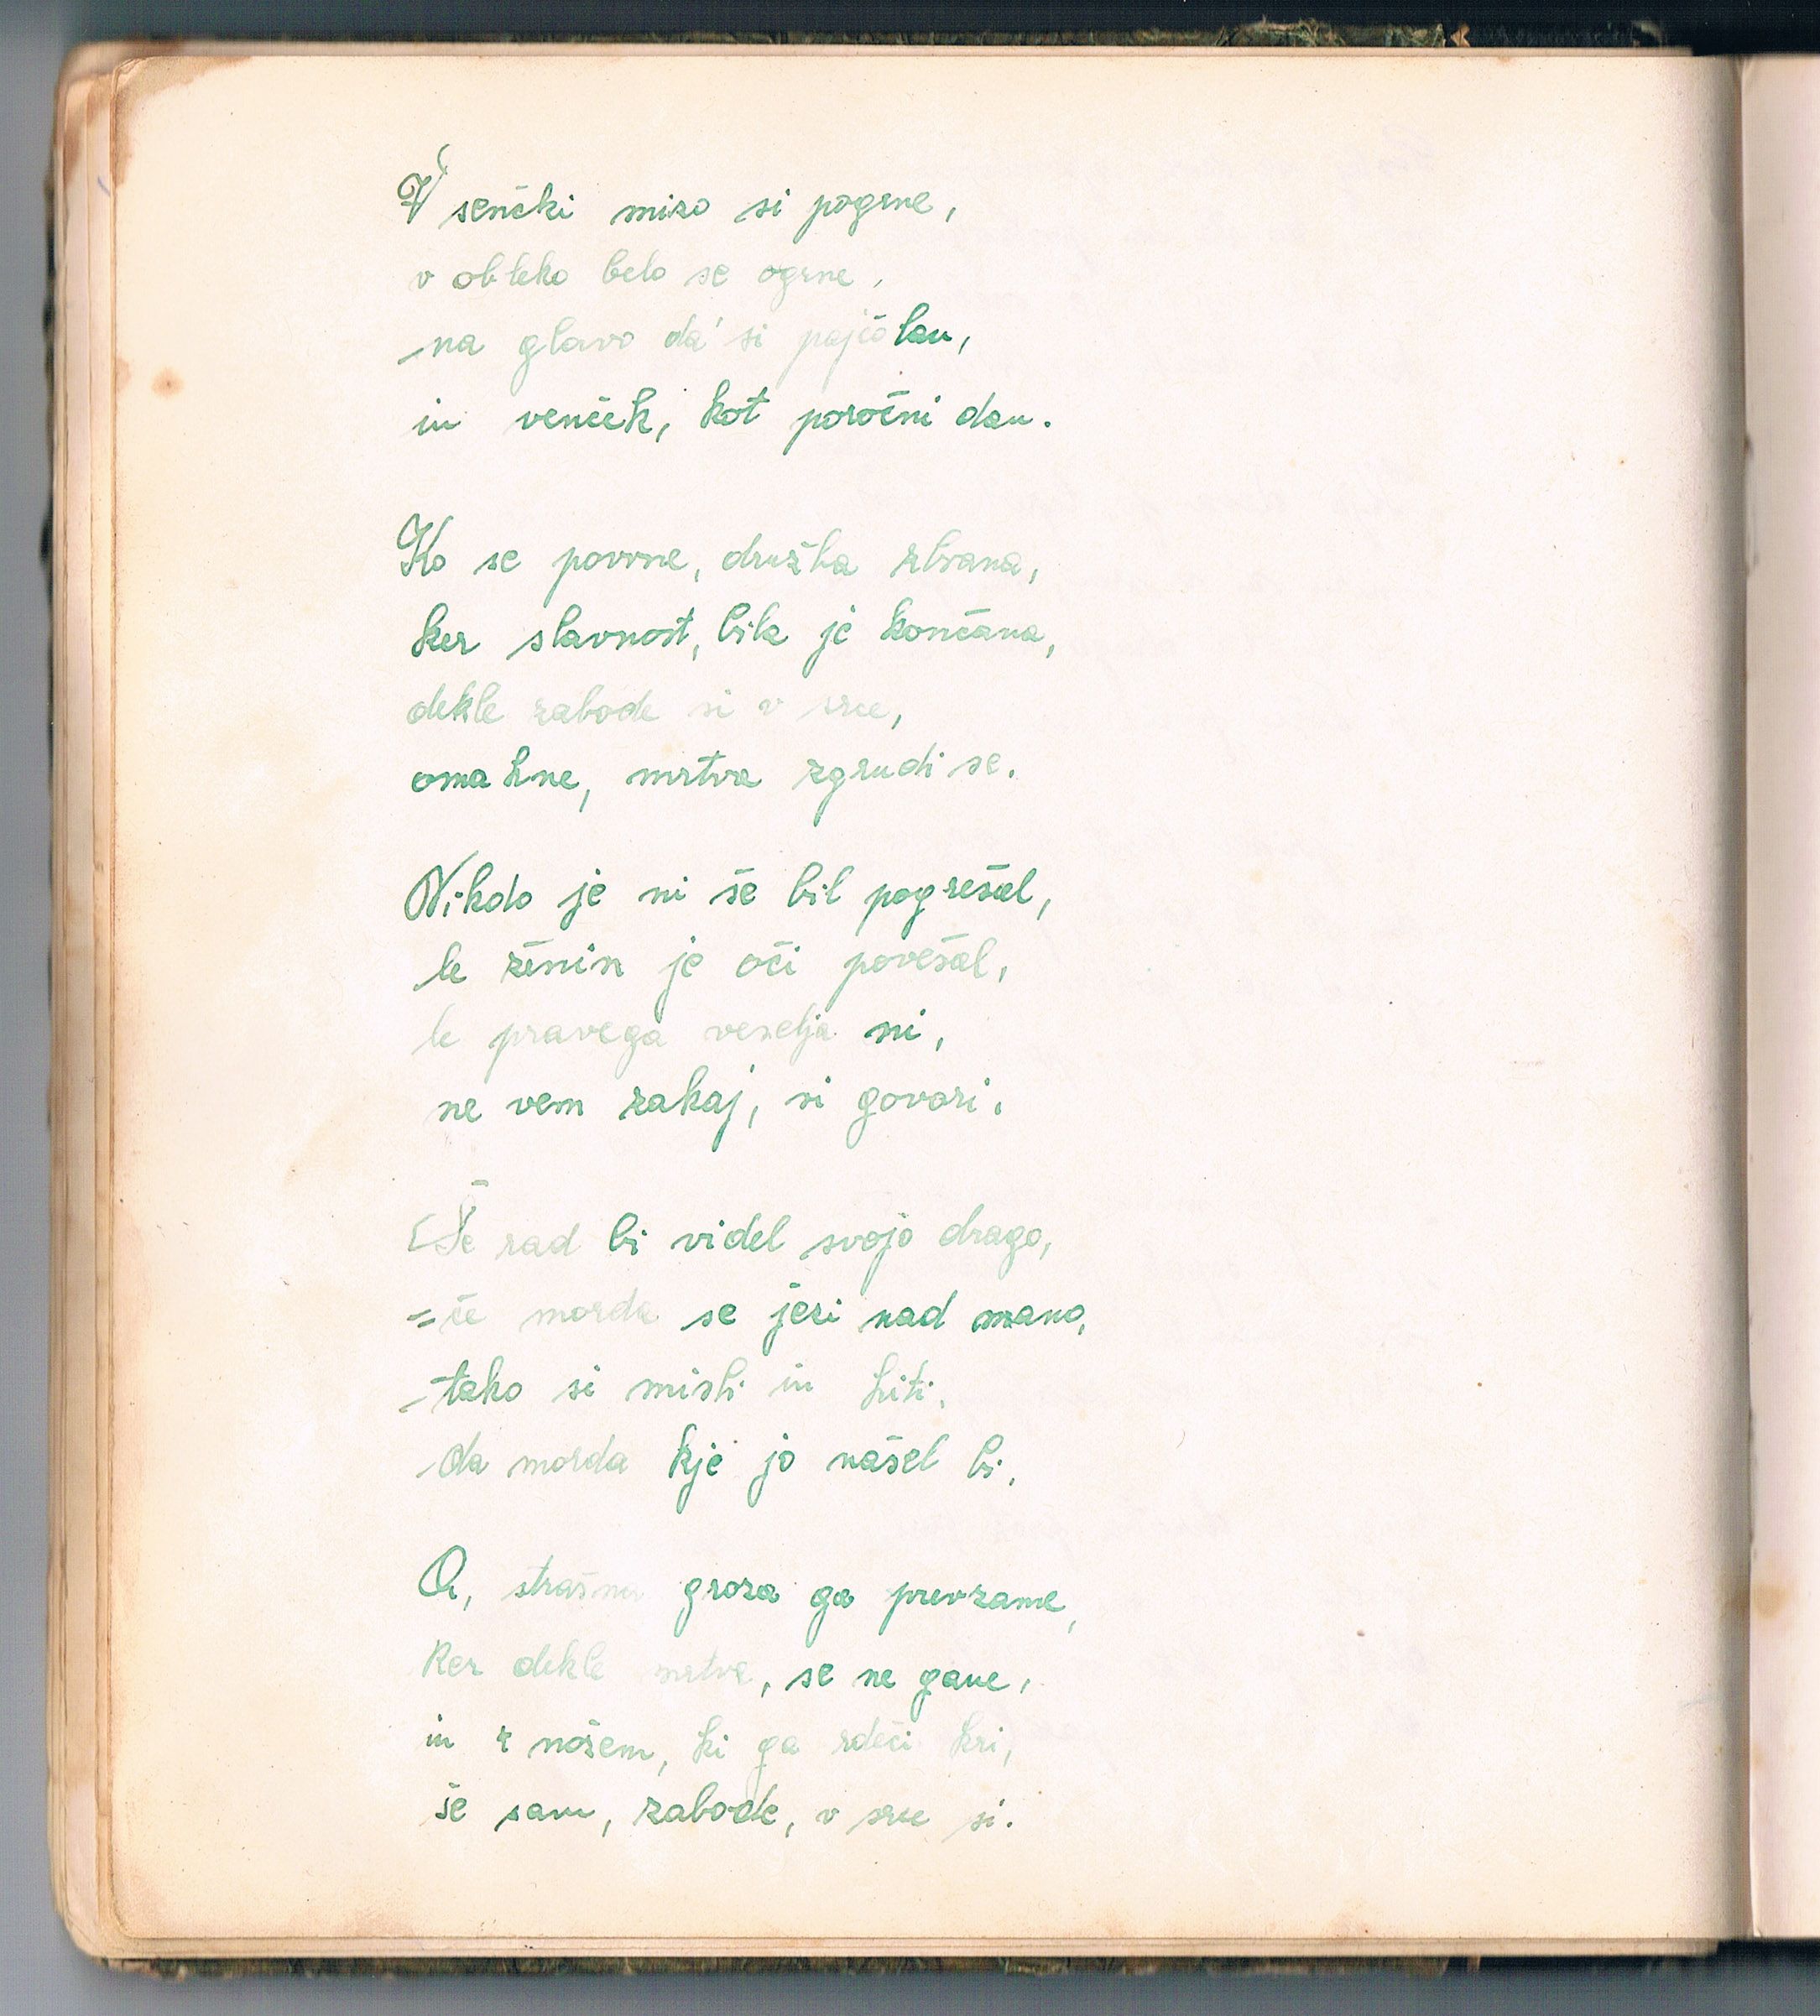 V senčki mizo si pogrne,
v obleko belo se ogrne,
na glavo da' si pajčolan,
in venček, kot poročni dan.
Ko se povrne, družba zbrana,
ker slavnost, bila je končana,
dekle zabode si v srce,
omahne, mrtva zgrudi se.
Nikdo je ni še bil pogrešal,
le ženin je oči povešal,
le pravega veselja ni,
ne vem zakaj, si govori.
Še rad bi videl svojo drago,
če morda se jezi nad mano,
tako si misli in hiti,
da morda kje jo našel bi.
O, strašna groza ga prevzame,
ker dekle mrtva, se ne gane,
in z nožem, ki ga rdeči kri,
še sam, zabode, v srce si.